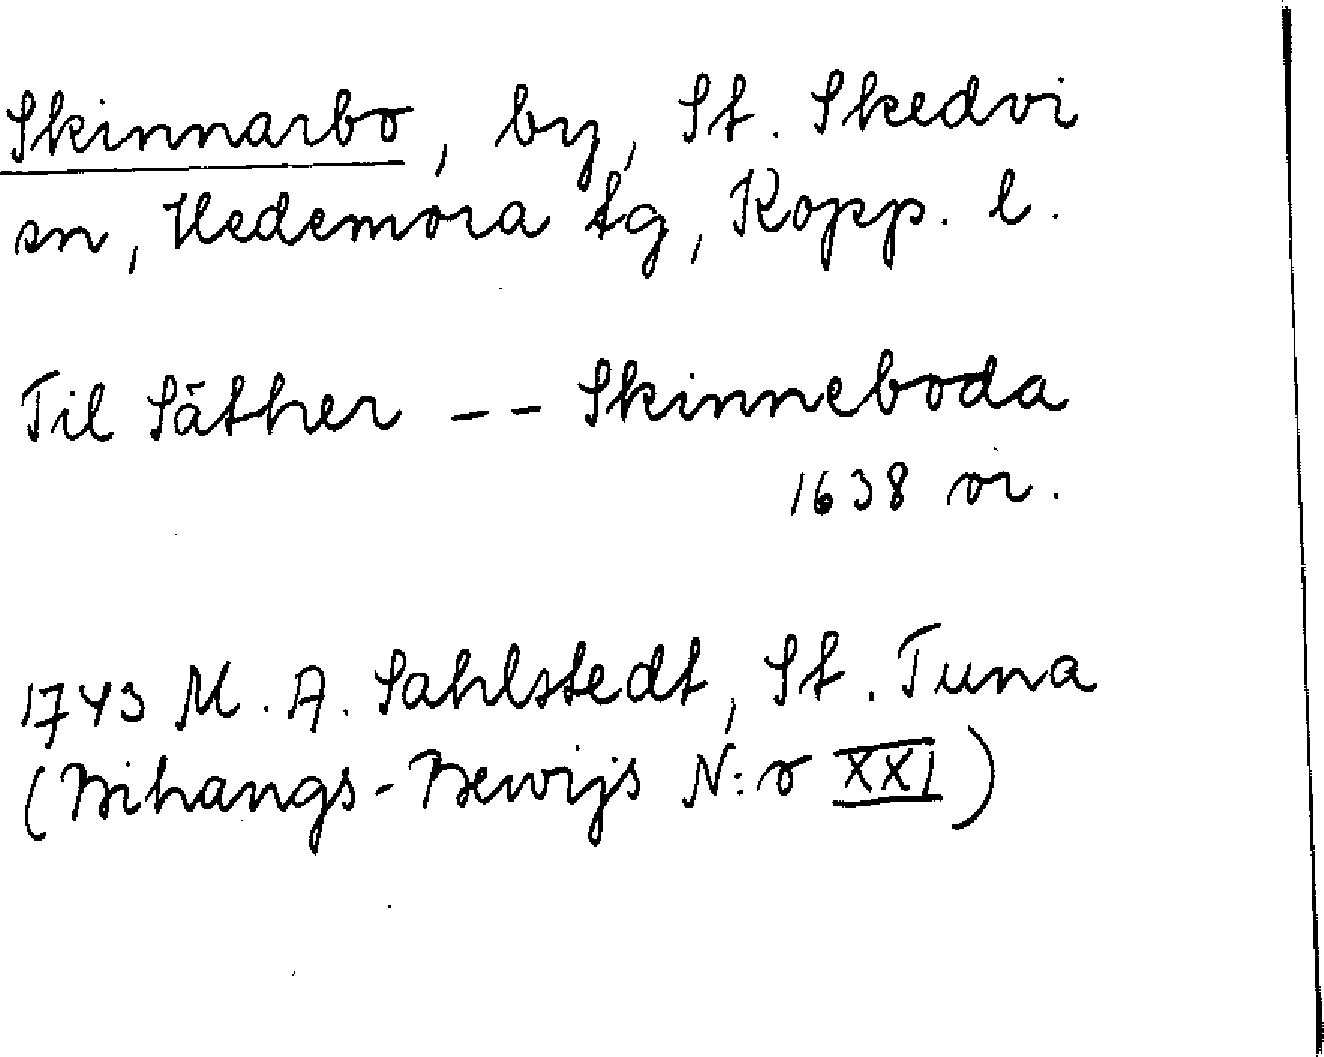 Skinnarbo, by, St. Skedvi
sn, Hedemora tg, Kopp. l.
Til Säther -- Skinneboda
1638 or.
1743 M. A. Sahlstedt, St. Tuna
(Bihangs-Bewijs N:o XXI)